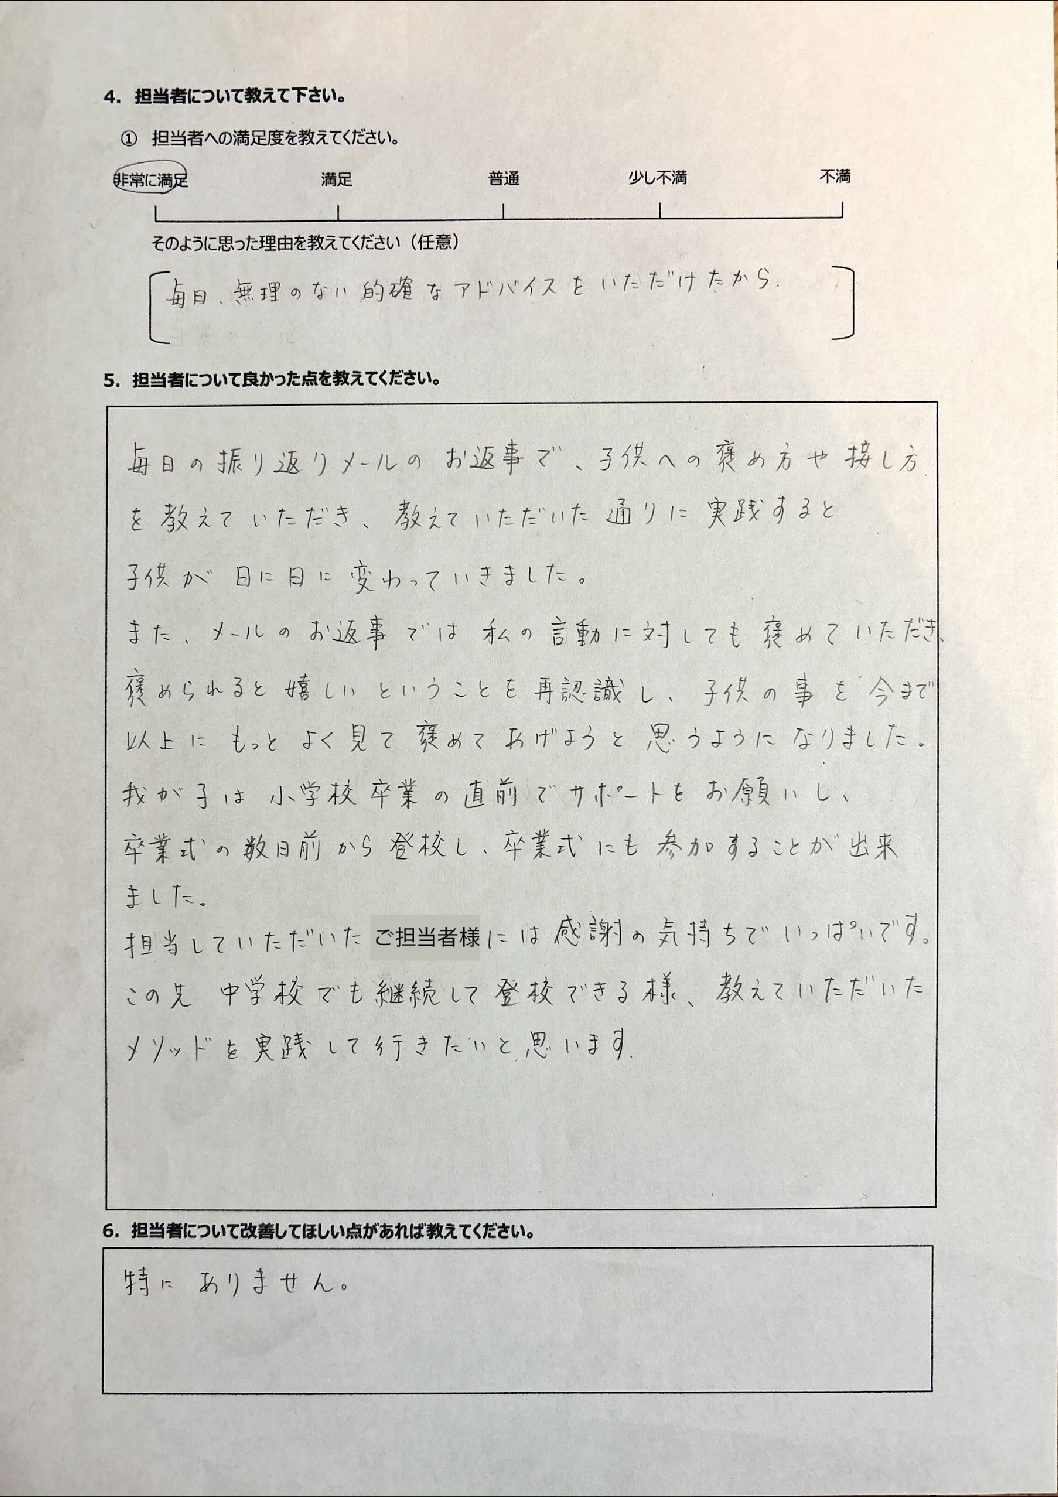 4. 担当者について教えて下さい。
① 担当者への満足度を教えてください。
非常に満足 満足 普通 少し不満 不満
そのように思った理由を教えてください（任意）
毎日、無理のない的確なアドバイスをいただけたから.
5. 担当者について良かった点を教えてください。
毎日の振り返りメールのお返事で、子供への褒め方や接し方
を教えていただき、教えていただいた通りに実践すると
子供が日に日に変わっていきました。
また、メールのお返事では私の言動に対しても褒めていただき、
褒められると嬉しいということを再認識し、子供の事を今まで
以上にもっとよく見て褒めてあげようと思うようになりました。
我が子は小学校卒業の直前でサポートをお願いし、
卒業式の数日前から登校し、卒業式にも参加することが出来
ました。
担当していただいたご担当者様には感謝の気持ちでいっぱいです。
この先中学校でも継続して登校できる様、教えていただいた
メソッドを実践して行きたいと思います.
6. 担当者について改善してほしい点があれば教えてください。
特にありません。